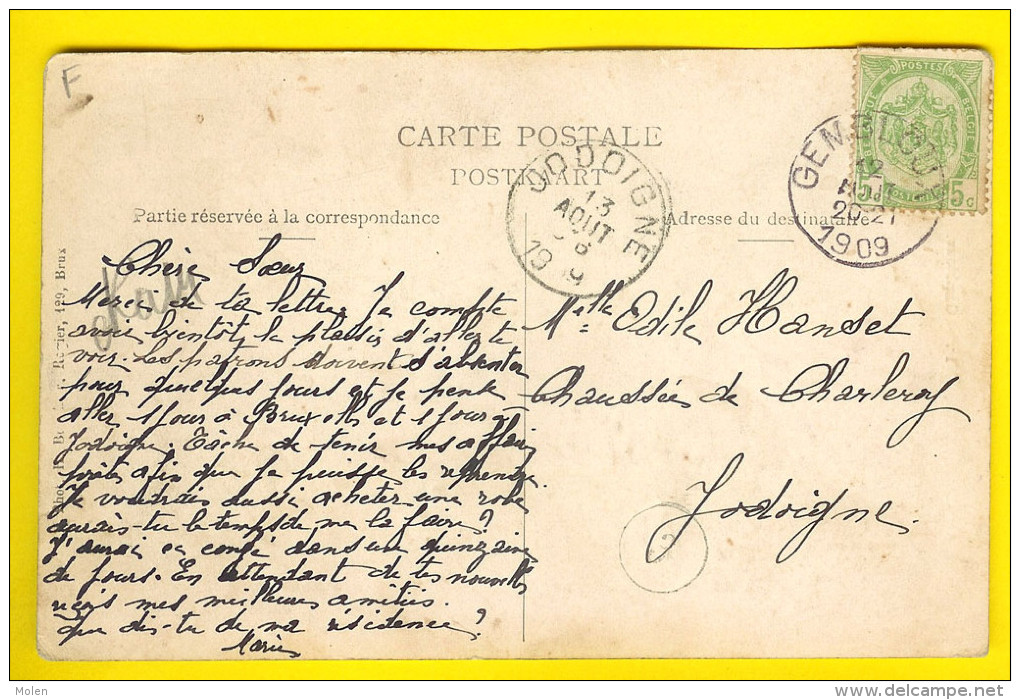 F
POSTES
5c
CARTE POSTALE
POSTKAART
GEMBLOUX
12
AOUT
20-21
1909
JODOIGNE
13
AOUT
1909
Partie réservée à la correspondance
Adresse du destinataire
129, Brux
Chère Sœur
Merci de ta lettre. Je compte
avoir bientôt le plaisir d'aller te
voir. Les patrons doivent s'absenter
pour quelques jours et je pense
aller 1 jour à Bruxelles et 1 jour à
Jodoigne. Tâche de tenir mes affaires
prêtes afin que je puisse les reprendre.
Je voudrais aussi acheter une robe
aurais-tu le temps de me la faire?
J'aurai ce congé dans une quinzaine
de jours. En attendant de tes nouvelles
reçois mes meilleures amitiés.
Que dis-tu de ma résidence?
Marie
Melle Edile Hanset
Chaussée de Charleroy
Jodoigne.
Molen
delcampe.net